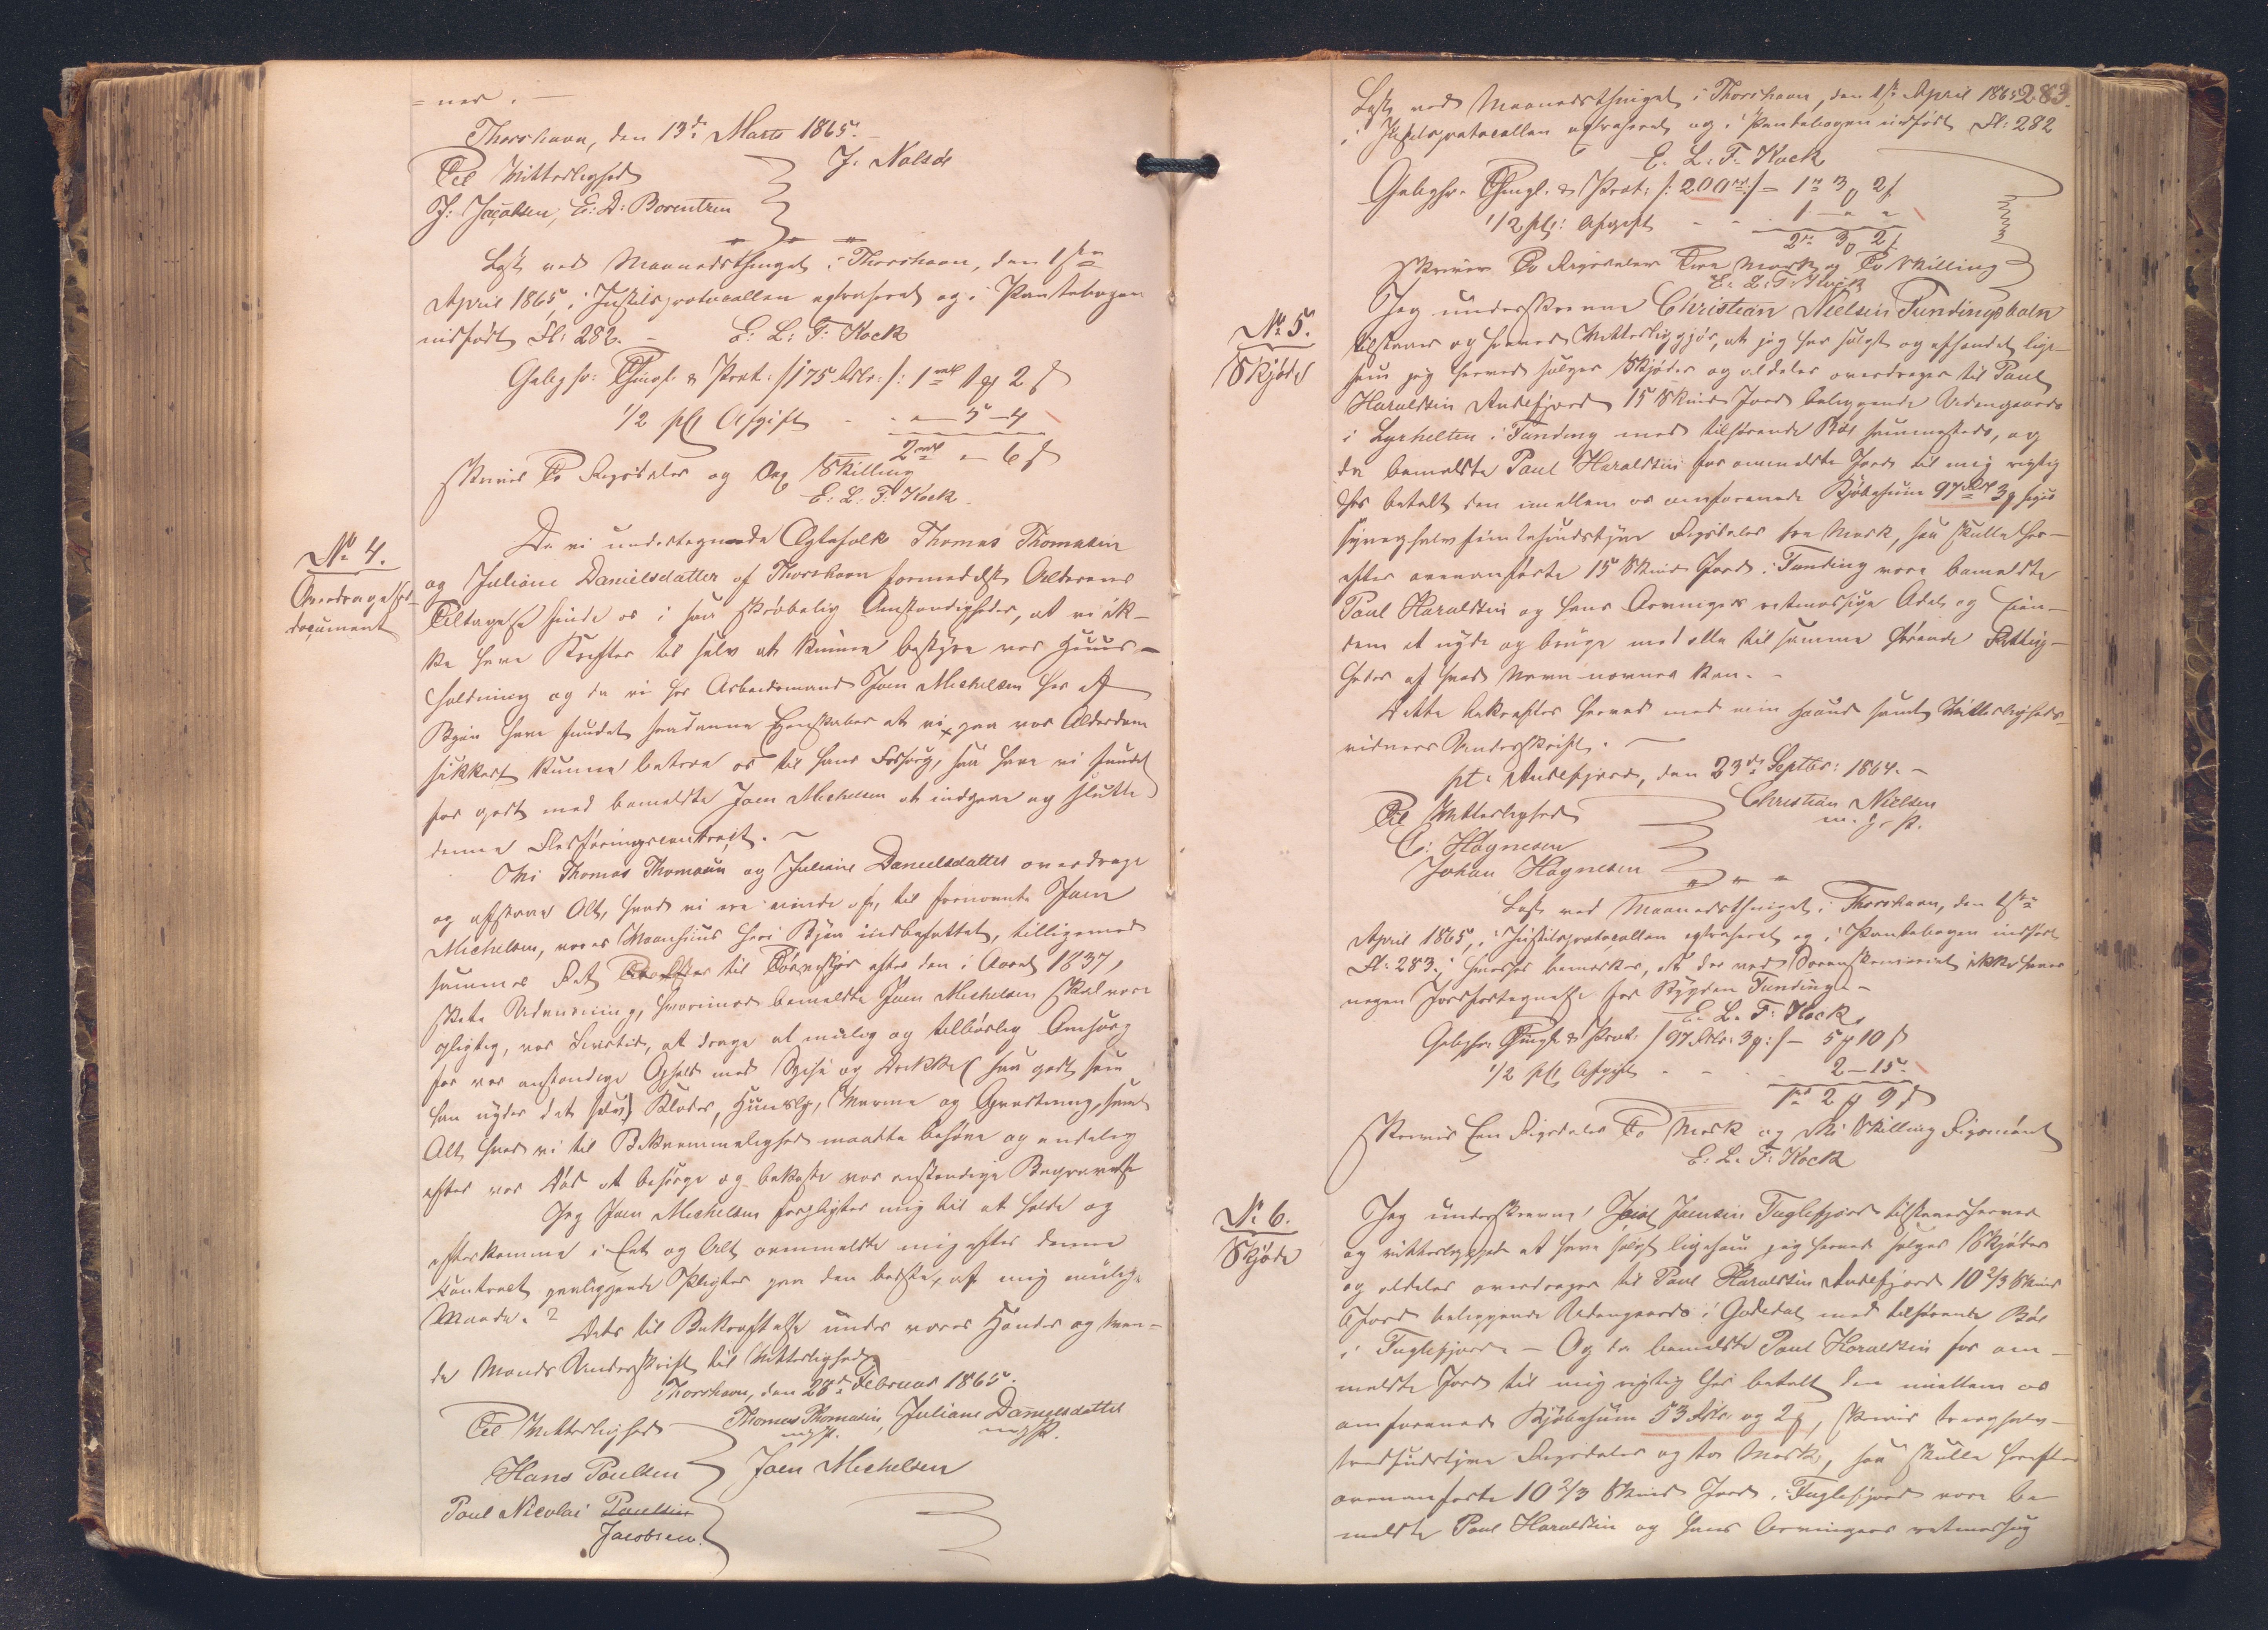 = ner. —
Thorshavn, den 13de Marts 1865.
Til Vitterlighed J. Nolsøe
J: Jacobsen, E: D: Borentzen
Læst ved Maanedsthinget i Thorshavn, den 1ste
April 1865, i Justitsprotocollen extraheret og i Pantebogen
indført Fl: 282. - E: L: T: Kock
Gebyhr: Thingl. & Prot: /: 175 Rdlr :/: 1 rd 1 ẞ 2 s
1/2 pCt Afgift - - " - 5 - 4
2 rd " 6 s
skriver To Rigsdaler og Sex Skilling
E: L: T: Kock.
No 4.
Overdragelses-
document
Da vi undertegnede Ægtefolk Thomas Thomasen
og Juliane Danielsdatter af Thorshavn formedelst Alderens
Tiltagelse finde os i saa skrøbelig Omstændigheder, at vi ik-
ke have Kræfter til selv at kunne bestyre vor Huus-
holdning og da vi hos Arbeidsmand Joen Michelsen her af
Byen have fundet saadanne Egenskaber at vi paa vor Alderdom
sikkert kunne betroe os til hans Forsorg, saa have vi fundet
for godt med bemeldte Joen Michelsen at indgaae og slutte
denne Fledføringscontract. ~
Vi Thomas Thomasen og Juliane Danielsdatter overdrage
og afstaae Alt, hvad vi ere eiende af, til fornævnte Joen
Michelsen, vores Vaanhuus her i Byen indbefattet, tilligemed
sammes Ret til Tørveskjær efter den i Aaret 1837,
skete Udviisning, hvorimod bemeldte Joen Michelsen skal være
pligtig, vor Livstid, at drage al mulig og tilbørlig Omsorg
for vor anstændige Ophold med Spise og Drikke (saa godt som
han nyder det selv) Klæder, Huusly, Varme og Opvartning, samt
Alt hvad vi til Bekvemmelighed maatte behøve og endelig
efter vor Død at besørge og bekoste vor anstændige Begravelse
Jeg Joen Michelsen forpligter mig til at holde og
efterkomme i Eet og Alt ovenmeldte mig efter denne
Contract paaliggende Pligter paa den bedste, af mig mulige
Maade.
Dets til Bekræftelse under vores Hænder og tven-
de Mænds Underskrift til Vitterlighed
Thorshavn, den 28de Februar 1865.
Til Vitterlighed Thomas Thomasen, Juliane Danielsdatter
m.f.P. m.f.P.
Hans Poulsen Joen Michelsen
Paul Nicolai Paulsen
Jacobsen.
283.
Læst ved Maanedsthinget i Thorshavn, den 1ste April 1865
i Justitsprotocollen extraheret og i Pantebogen indført Fl: 282
E. L. T. Kock
Gebyhr. Thingl. & Prot: /: 200 rd :/ - 1 rd 3 ẞ 2 s
1/2 pCt: Afgift - - 1 - " - "
2 rd 3 ẞ 2 s
skriver To Rigsdaler Tre Mark og To Skilling
E. L. T. Kock
No 5.
Skjøde
Jeg underskrevne Christian Nielsen Fundingsbotn
tilstaaer og herved Vitterliggjør, at jeg har solgt og afhændet lige-
som jeg herved sælger Skjøder og aldeles overdrager til Paul
Haraldsen Andefjord 15 Skind Jord beliggende Udengaards
i Lyrhelten i Funding med tilhørende Bøe sammesteds, og
da bemeldte Paul Haraldsen for ommeldte Jord til mig rigtig
har betalt den imellem os omforenede Kjøbesum 97 Rd 3 ẞ siger
syvoghalvfemtesindstyve Rigsdaler tre Mark, saa skulle her-
efter ovenanførte 15 Skind Jord i Funding være bemeldte
Paul Haraldsen og hans Arvingers retmæssige Odel og Eien-
dom at nyde og bruge med alle til samme hørende Rettig-
heder af hvad Navn nævnes kan. -
Dette bekræftes herved med min Haand samt Vitterligheds-
vidners Underskrift. —
pt. Andefjord, den 23de Septbr: 1864. -
Til Vitterlighed Christian Nielsen
m. f. P.
C: Høgnesen
Johan Høgnesen
Læst ved Maanedsthinget i Thorshavn, den 1ste
April 1865, i Justitsprotocollen extraheret og i Pantebogen indført
Fl: 283., hvorhos bemærkes, at der ved Sorenskriveriet ikke haves
nogen Jordfortegnelse for Bygden Funding. -
E. L. T. Kock
Gebyhr: Thingl & Prot. /: 97 Rdlr: 3 ẞ :/ - 5 ẞ 10 s
1/2 pCt Afgift - - 2 - 15.
1 rd 2 ẞ 9 s
Skriver Een Rigsdaler To Mark og Ni Skilling Rigsmønt
E: L. T: Kock
No 6.
Skjøde
Jeg underskrevne Joen Joensen Fuglefjord tilstaaer herved
og vitterliggjør at have solgt ligesom jeg herved sælger Skjøder
og aldeles overdrager til Paul Haraldsen Andefjord 10 2/3 Skind
Jord beliggende Udengaards i Gadedal med tilhørende Bøe
i Fuglefjord. - Og da bemeldte Paul Haraldsen for om-
meldte Jord til mig rigtig har betalt den imellem os
omforenede Kjøbesum 53 Rdlr og 2 ẞ, skriver treoghalv-
tredsindstyve Rigsdaler og to Mark, saa skulle herefter
ovenanførte 10 2/3 Skind Jord i Fuglefjord være be-
meldte Paul Haraldsen og hans Arvingers retmæssig